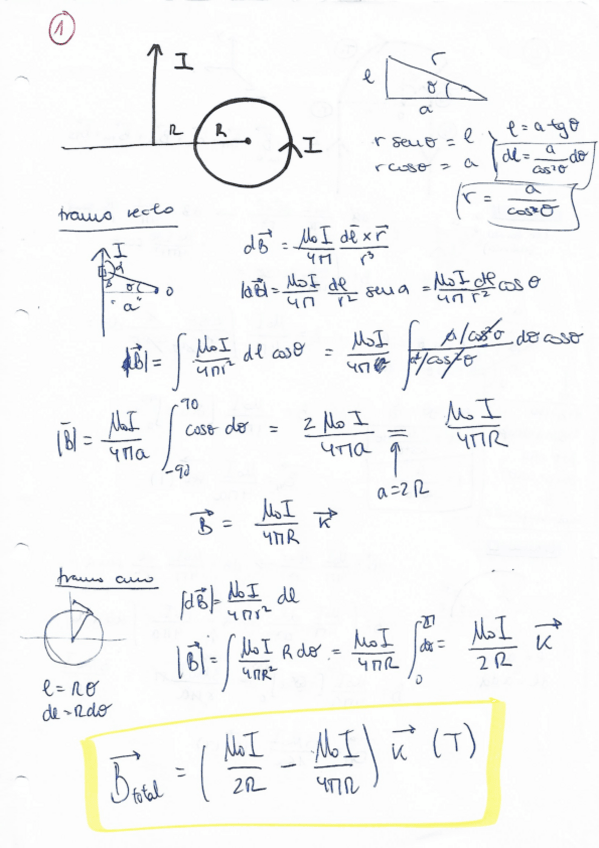 1
I
R R I
l r θ a
r senθ = l
r cosθ = a
l = a·tgθ
dl = a/cos²θ dθ
r = a/cos²θ
tramo recto
I
α
r
θ O
"a"
dB⃗ = μ₀I/4π dl⃗ × r⃗/r³
|dB⃗| = μ₀I/4π dl/r² senα = μ₀I/4π dl/r² cosθ
|B⃗| = ∫ μ₀I/4πr² dl cosθ = μ₀I/4π ∫ a/cos²θ / a²/cos²θ dθ cosθ
|B⃗| = μ₀I/4πa ∫₋₉₀⁹⁰ cosθ dθ = 2μ₀I/4πa = μ₀I/4πR
a=2R
B⃗ = μ₀I/4πR K⃗
tramo curvo
|dB⃗| = μ₀I/4πr² dl
|B⃗| = ∫ μ₀I/4πR² R dθ = μ₀I/4πR ∫₀²π dθ = μ₀I/2R K⃗
l = Rθ
dl = R dθ
B⃗total = (μ₀I/2R − μ₀I/4πR) K⃗ (T)